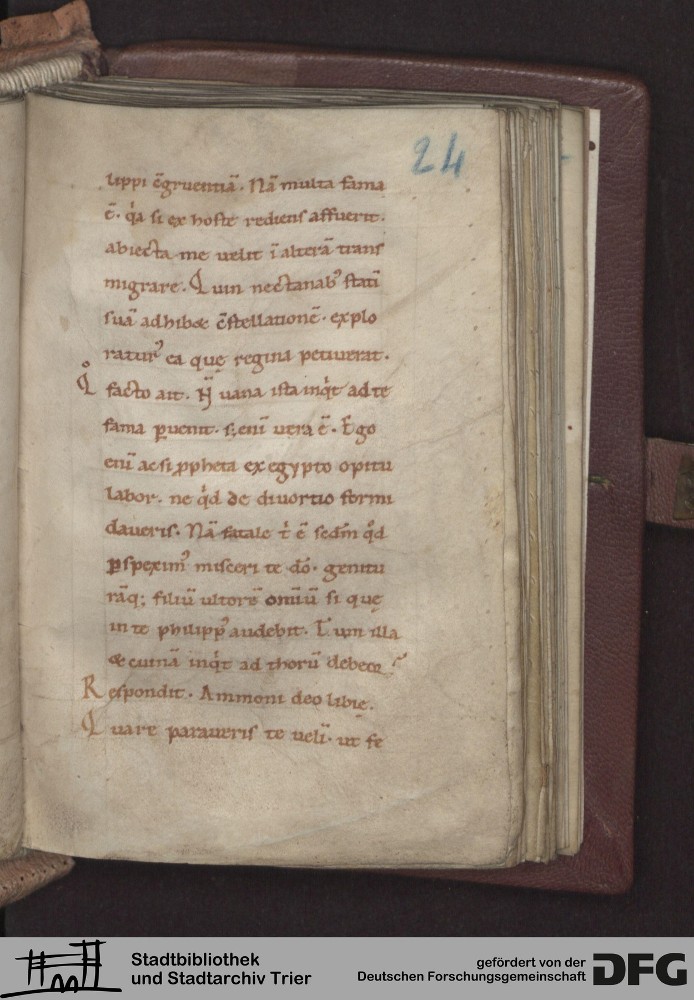 24
lippi c̄gruentiā. Nā multa fama
ē. q̇a si ex hoste rediens affuerit.
abiecta me velit ī alterā trans
migrare. Tum nectanab᾽ statī
suā adhib& c̄stellationē. explo
ratur᾽ ea quę regina petiverat.
Q̊ facto ait. N̄ vana ista inq̇t ad te
fama p̱uenit. s; enī vera ē. Ego
enī ac si ꝓpheta ex egypto opitu
labor. ne q̇d de divortio formi
daveris. Nā fatale t̄ ē sedm̄ q̇d
p̱spexim᾽ misceri te dō. genitu
rāq; filiū ultorē omiū si quę
in te philipp᾽ audebit. Tum illa
& cuinā inq̇t ad thorū debeor
Respondit. Ammoni deo libię.
Quare paraveris te velī. ut fe
Stadtbibliothek
und Stadtarchiv Trier
gefördert von der
Deutschen Forschungsgemeinschaft
DFG